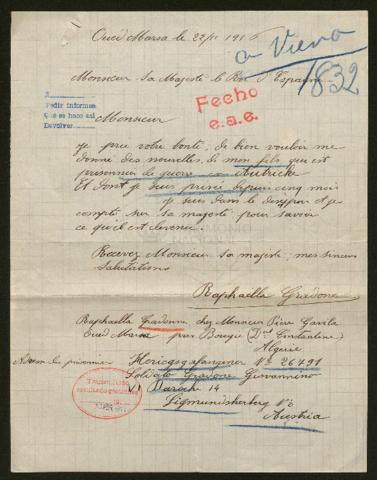 Oued Marsa le 22/11 1916
a Viena
1832
Monsieur Sa Majesté le Roi d'Espagne
A
Pedir informes
Que se hace así
Devolver
Fecho
e.a.e.
Monsieur
Je prie votre bonté, de bien vouloir me
donné des nouvelles de mon fils qui est
prisonnier de guerre en Autriche
Et dont je suis privé depuis cinq mois
je suis dans le désespoir et je
compte sur sa majesté pour savoir
ce qu'il est devenu.
Recevez Monsieur sa majesté, mes sincères
Salutations
Raphaëlla Gradone
Raphaella Gradone chez Monsieur Pierre
Oued Marsa près Bougie (Dnt Constantine)
Algérie
Adresse du prisonnier
Kriegsgefangener No 26791
Soldato Gradone Giovannino
VI Barack 14
Sigmundsherberg N.Ö
Austria